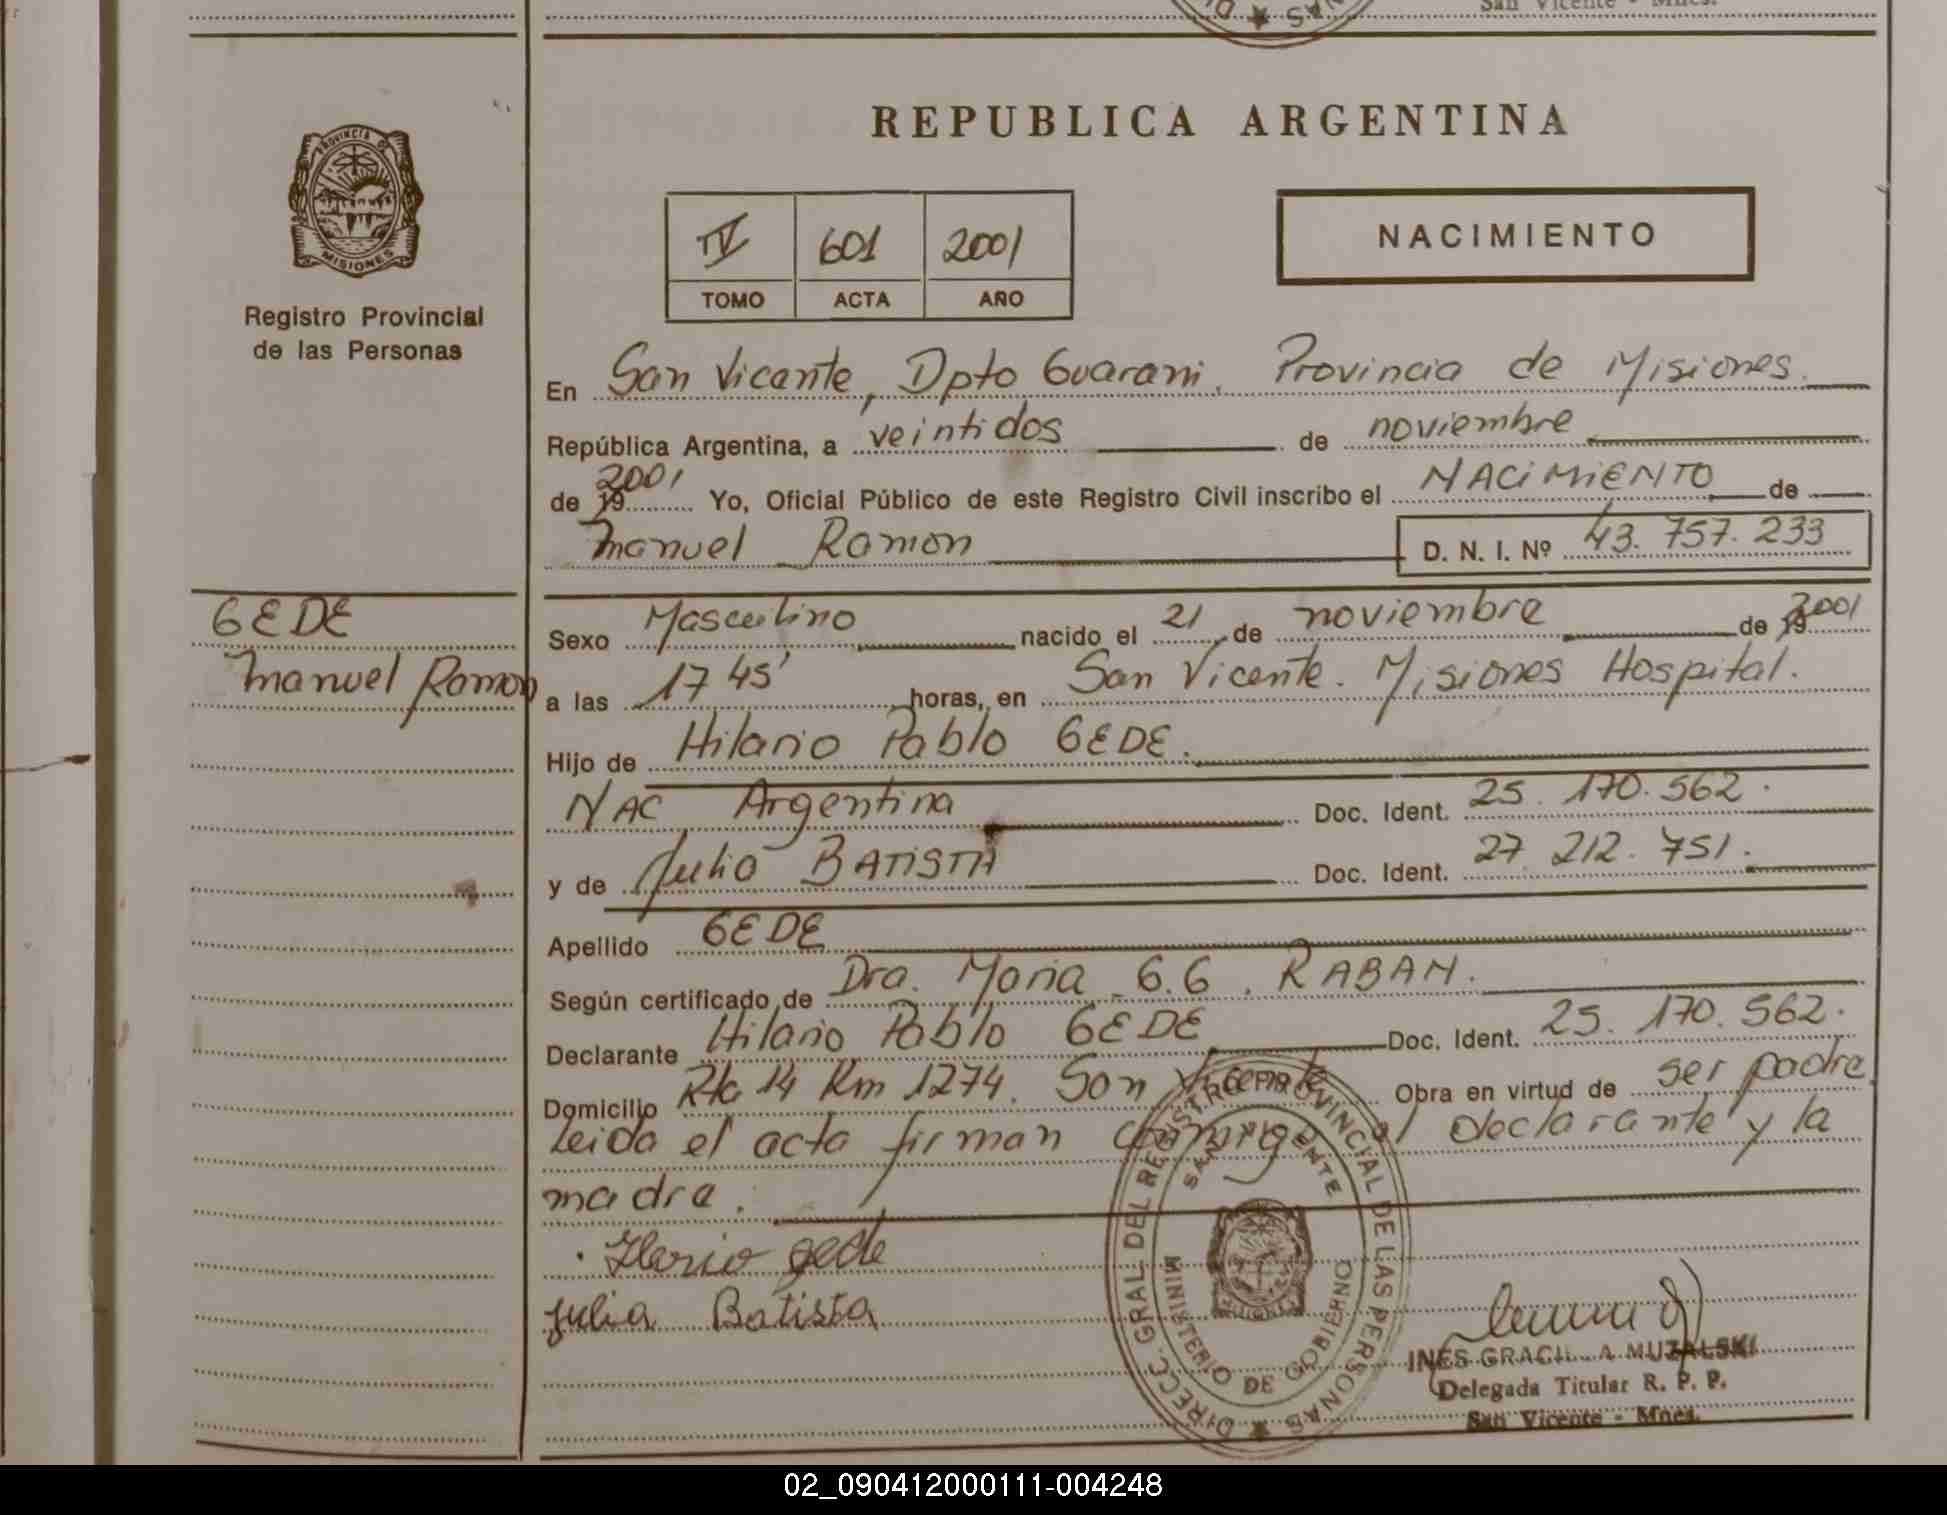 San Vicente - Mnes.
REPUBLICA ARGENTINA
PROVINCIA DE
MISIONES
Registro Provincial
de las Personas
IV 601 2001
TOMO ACTA AÑO
NACIMIENTO
En San Vicente, Dpto Guarani. Provincia de Misiones.
República Argentina, a veintidos de noviembre
de 19 2001 Yo, Oficial Público de este Registro Civil inscribo el NACIMIENTO de
Manuel Ramon D. N. I. Nº 43.757.233
GEDE
Manuel Ramon
Sexo Masculino nacido el 21 de noviembre de 19 2001
a las 17 45' horas, en San Vicente. Misiones Hospital.
Hijo de Hilario Pablo GEDE.
NAC Argentina Doc. Ident. 25.170.562.
y de Julia BATISTA Doc. Ident. 27.212.751.
Apellido GEDE
Según certificado de Dra. Maria G.G. RABAN.
Declarante Hilario Pablo GEDE Doc. Ident. 25.170.562.
Domicilio Rta 14 Km 1274. San Vicente Obra en virtud de ser padre
Leida el acta firman conmigo el declarante y la
madre.
Ilario gede
Julia Batista
DIRECC. GRAL. DEL REGISTRO PROVINCIAL DE LAS PERSONAS
SAN VICENTE
MINISTERIO DE GOBIERNO
INES GRACIELA MUZALSKI
Delegada Titular R. P. P.
San Vicente - Mnes.
02_090412000111-004248